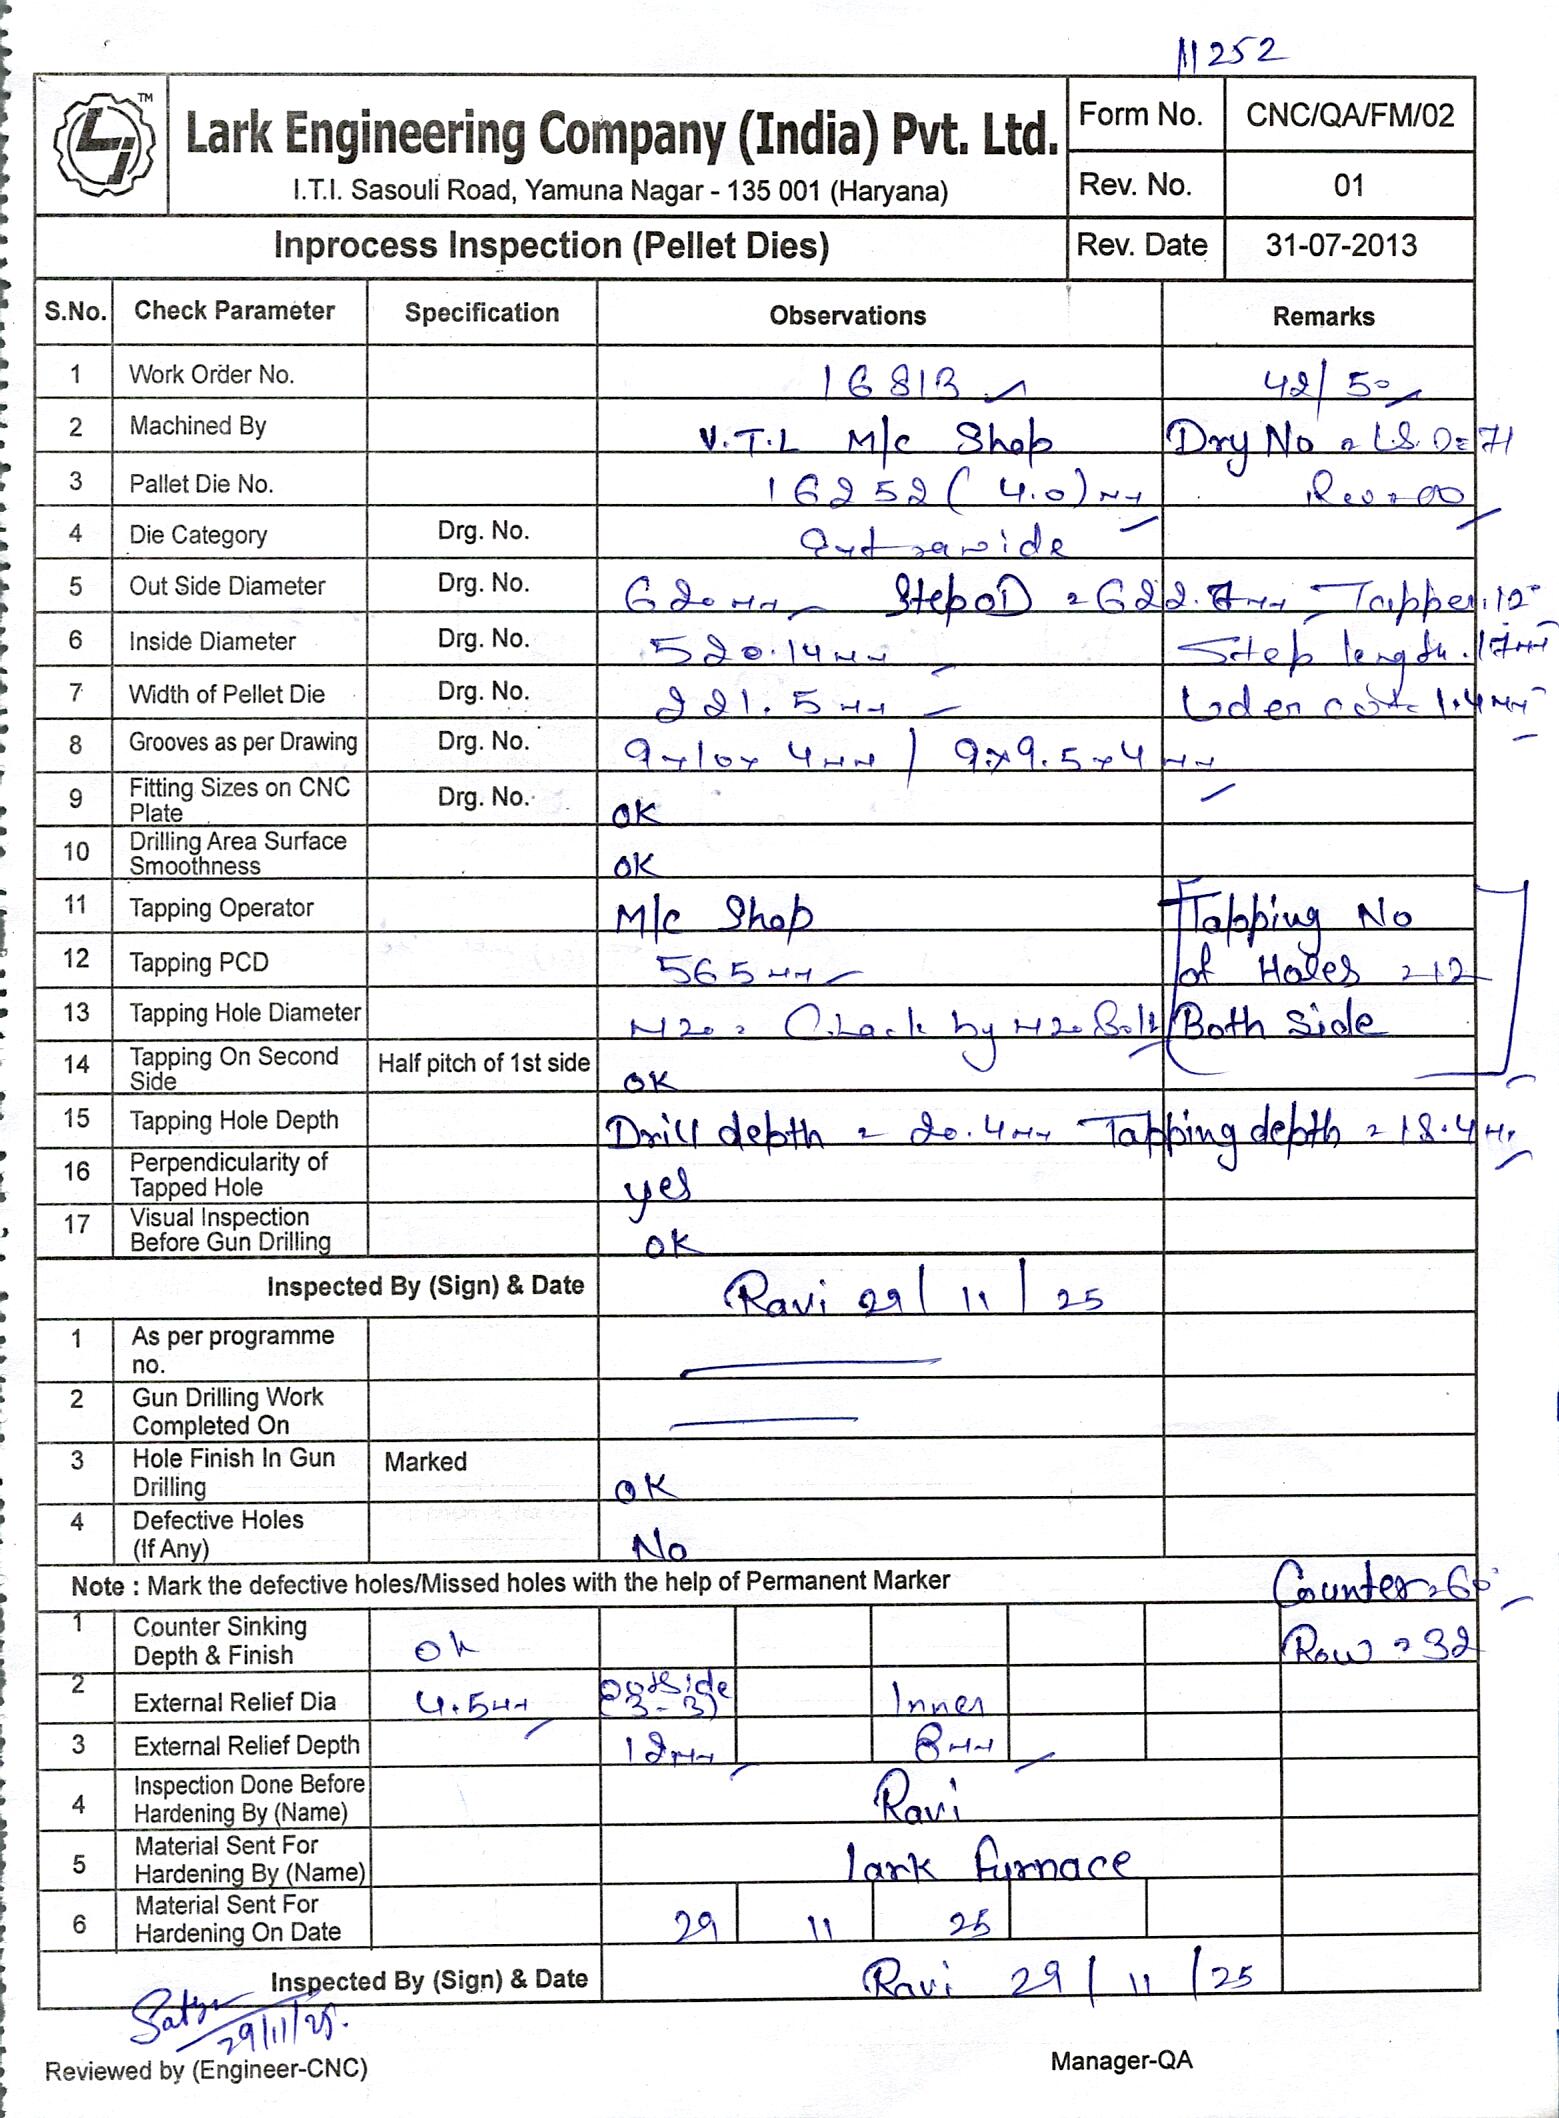 11252
TM
Lark Engineering Company (India) Pvt. Ltd.
I.T.I. Sasouli Road, Yamuna Nagar - 135 001 (Haryana)
Form No. CNC/QA/FM/02
Rev. No. 01
Inprocess Inspection (Pellet Dies) Rev. Date 31-07-2013
S.No. Check Parameter Specification Observations Remarks
1 Work Order No. 16813 42/50
2 Machined By V.T.L M/c Shop Dry No = L.S.D=71
3 Pallet Die No. 16252 (4.0) mm Rev = 00
4 Die Category Drg. No. Extrawide
5 Out Side Diameter Drg. No. 620mm Step OD = 622.7mm Tapper = 12°
6 Inside Diameter Drg. No. 520.14mm Step length = 17mm
7 Width of Pellet Die Drg. No. 221.5mm Uder cut = 1.4mm
8 Grooves as per Drawing Drg. No. 9x10x4mm / 9x9.5x4mm
9 Fitting Sizes on CNC Plate Drg. No. OK
10 Drilling Area Surface Smoothness OK
11 Tapping Operator M/c Shop Tapping No
12 Tapping PCD 565mm of Holes = 12
13 Tapping Hole Diameter M20 = Chack by M20 Bolt Both Side
14 Tapping On Second Side Half pitch of 1st side OK
15 Tapping Hole Depth Drill depth = 20.4mm Tapping depth = 18.4mm
16 Perpendicularity of Tapped Hole yes
17 Visual Inspection Before Gun Drilling OK
Inspected By (Sign) & Date Ravi 29/11/25
1 As per programme no.
2 Gun Drilling Work Completed On
3 Hole Finish In Gun Drilling Marked OK
4 Defective Holes (If Any) No
Note : Mark the defective holes/Missed holes with the help of Permanent Marker Counter = 60°
1 Counter Sinking Depth & Finish Ok Row = 32
2 External Relief Dia 4.5mm Outside (3-3) Inner
3 External Relief Depth 12mm 8mm
4 Inspection Done Before Hardening By (Name) Ravi
5 Material Sent For Hardening By (Name) lark furnace
6 Material Sent For Hardening On Date 29 11 25
Inspected By (Sign) & Date Ravi 29/11/25
29/11/25.
Reviewed by (Engineer-CNC) Manager-QA